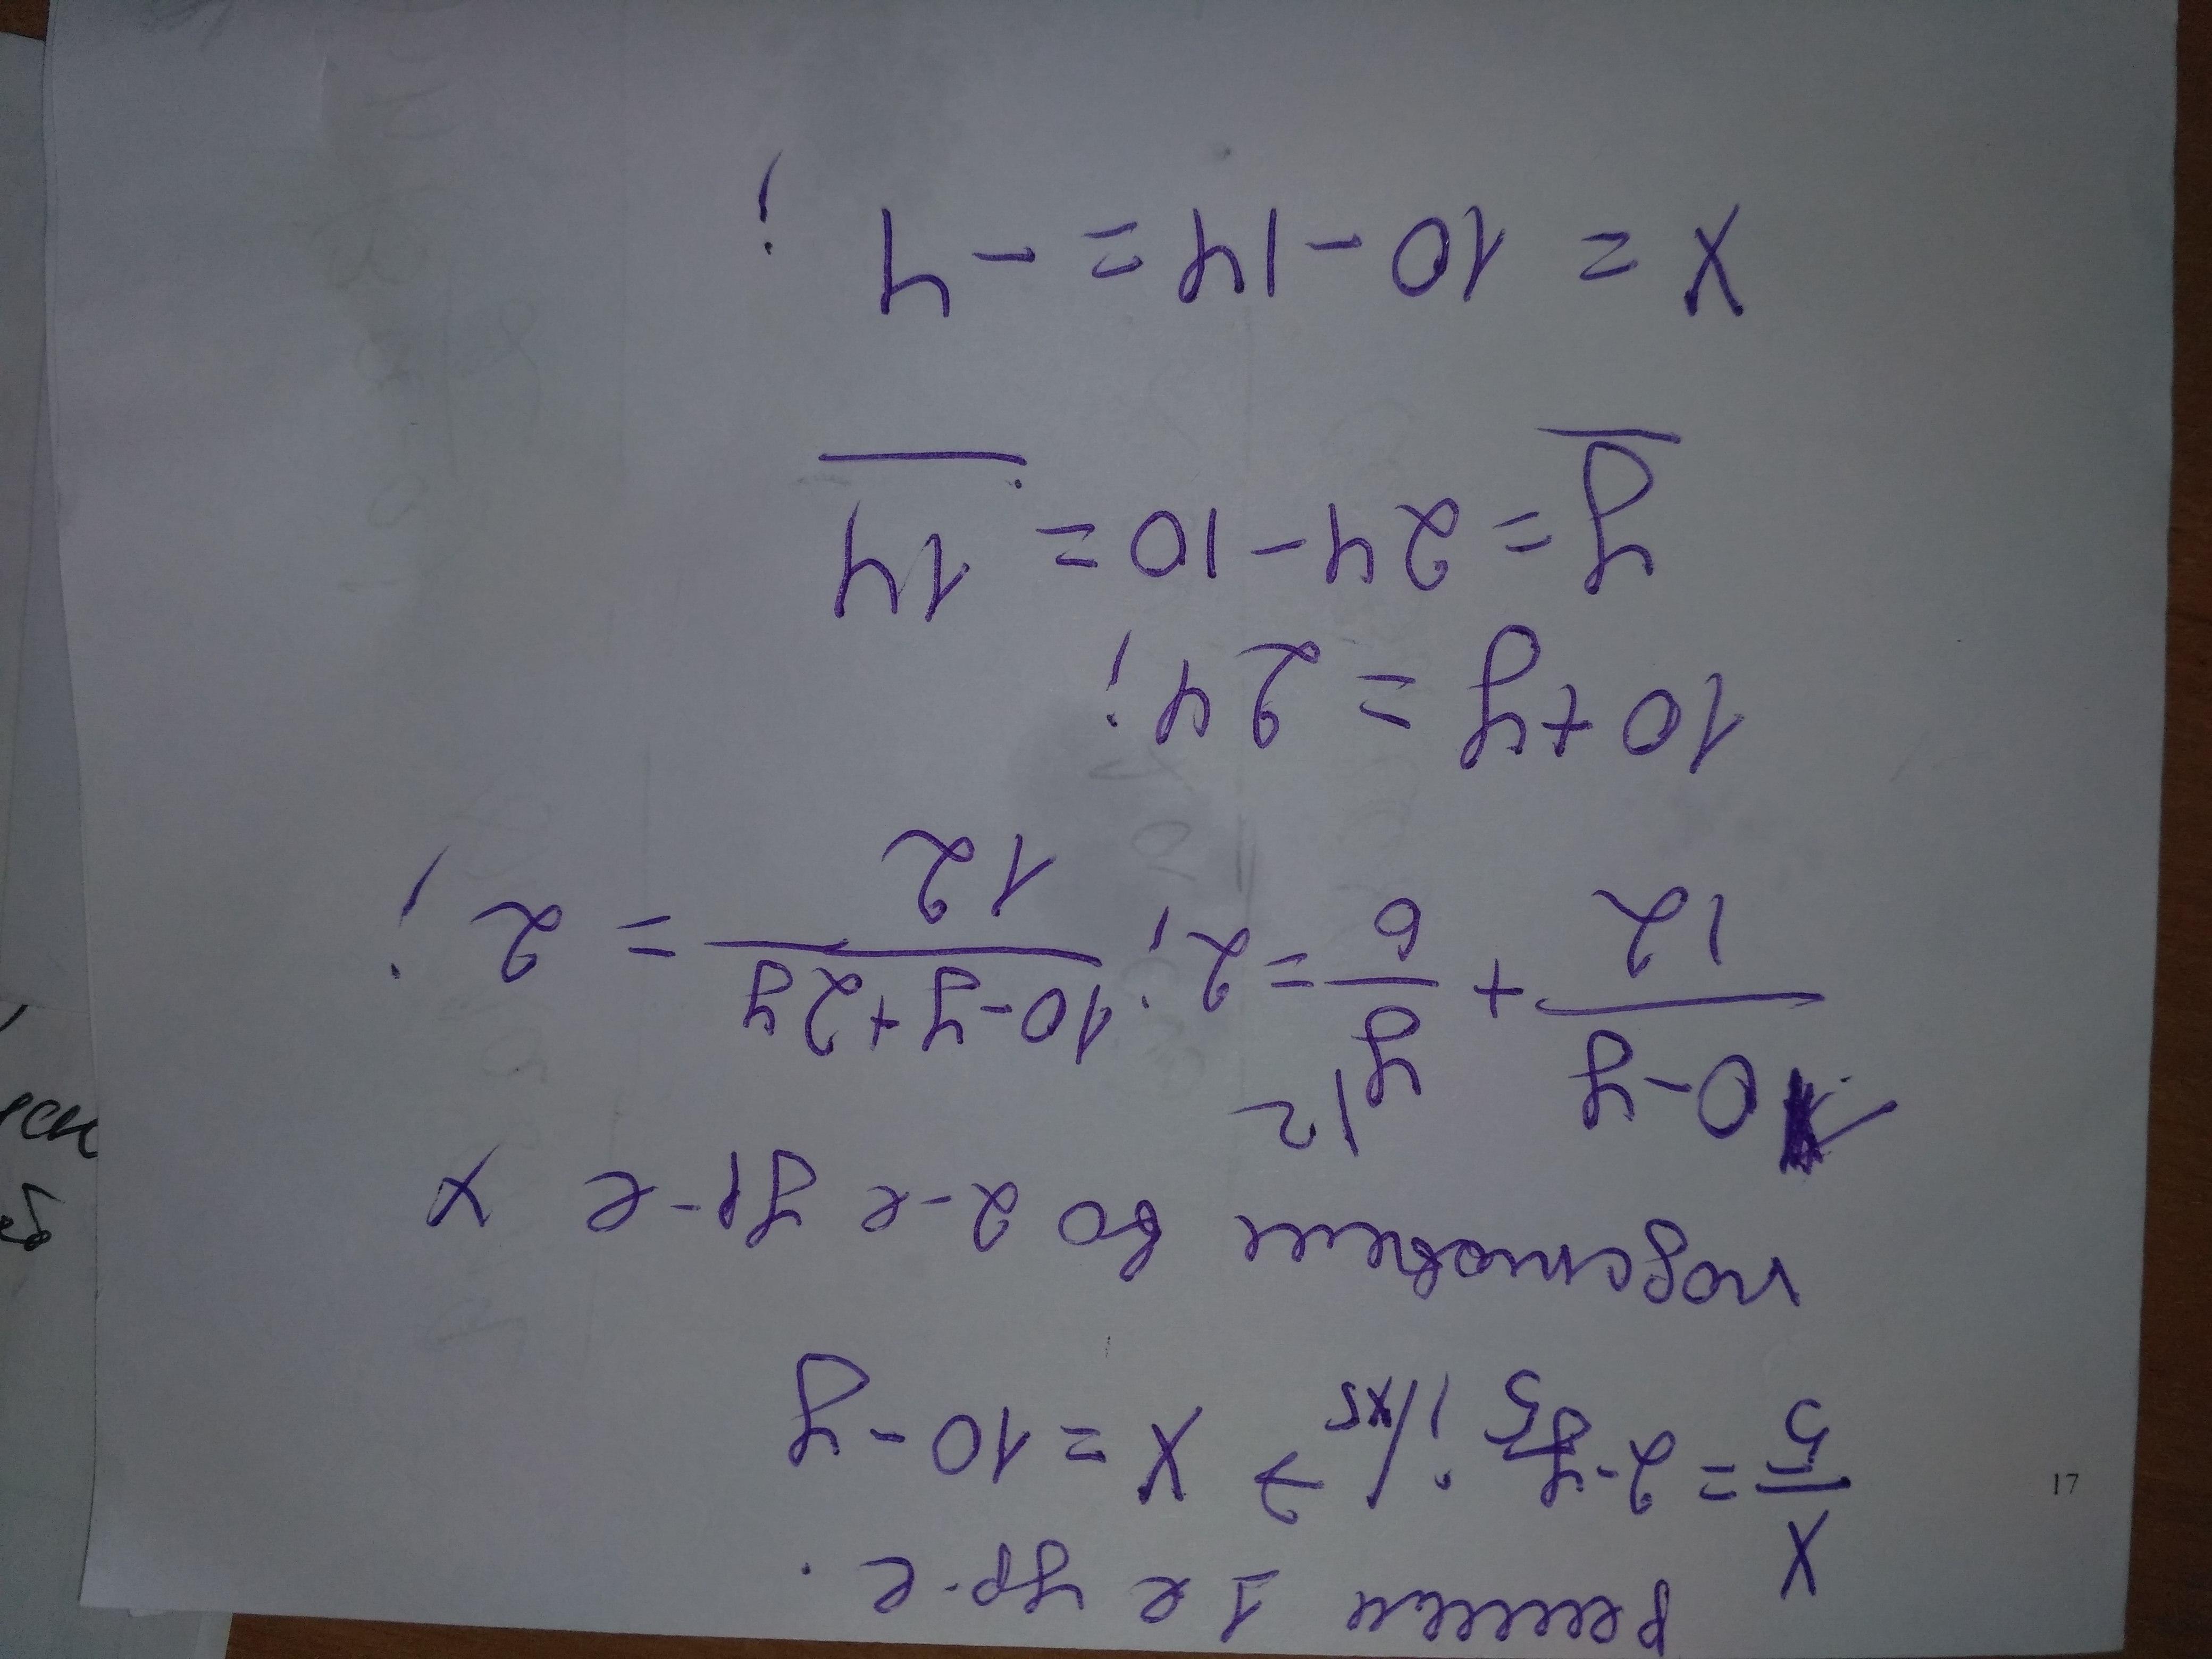 Решаем 1 е ур-е.
x/5 = 2 - y/5; /x5 → x = 10 - y
подставляем во 2-е ур-е x
10-y/12 + y/6 = 2; 10-y+2y/12 = 2;
12
10 + y = 24;
y = 24 - 10 = 14
x = 10 - 14 = -4;
17